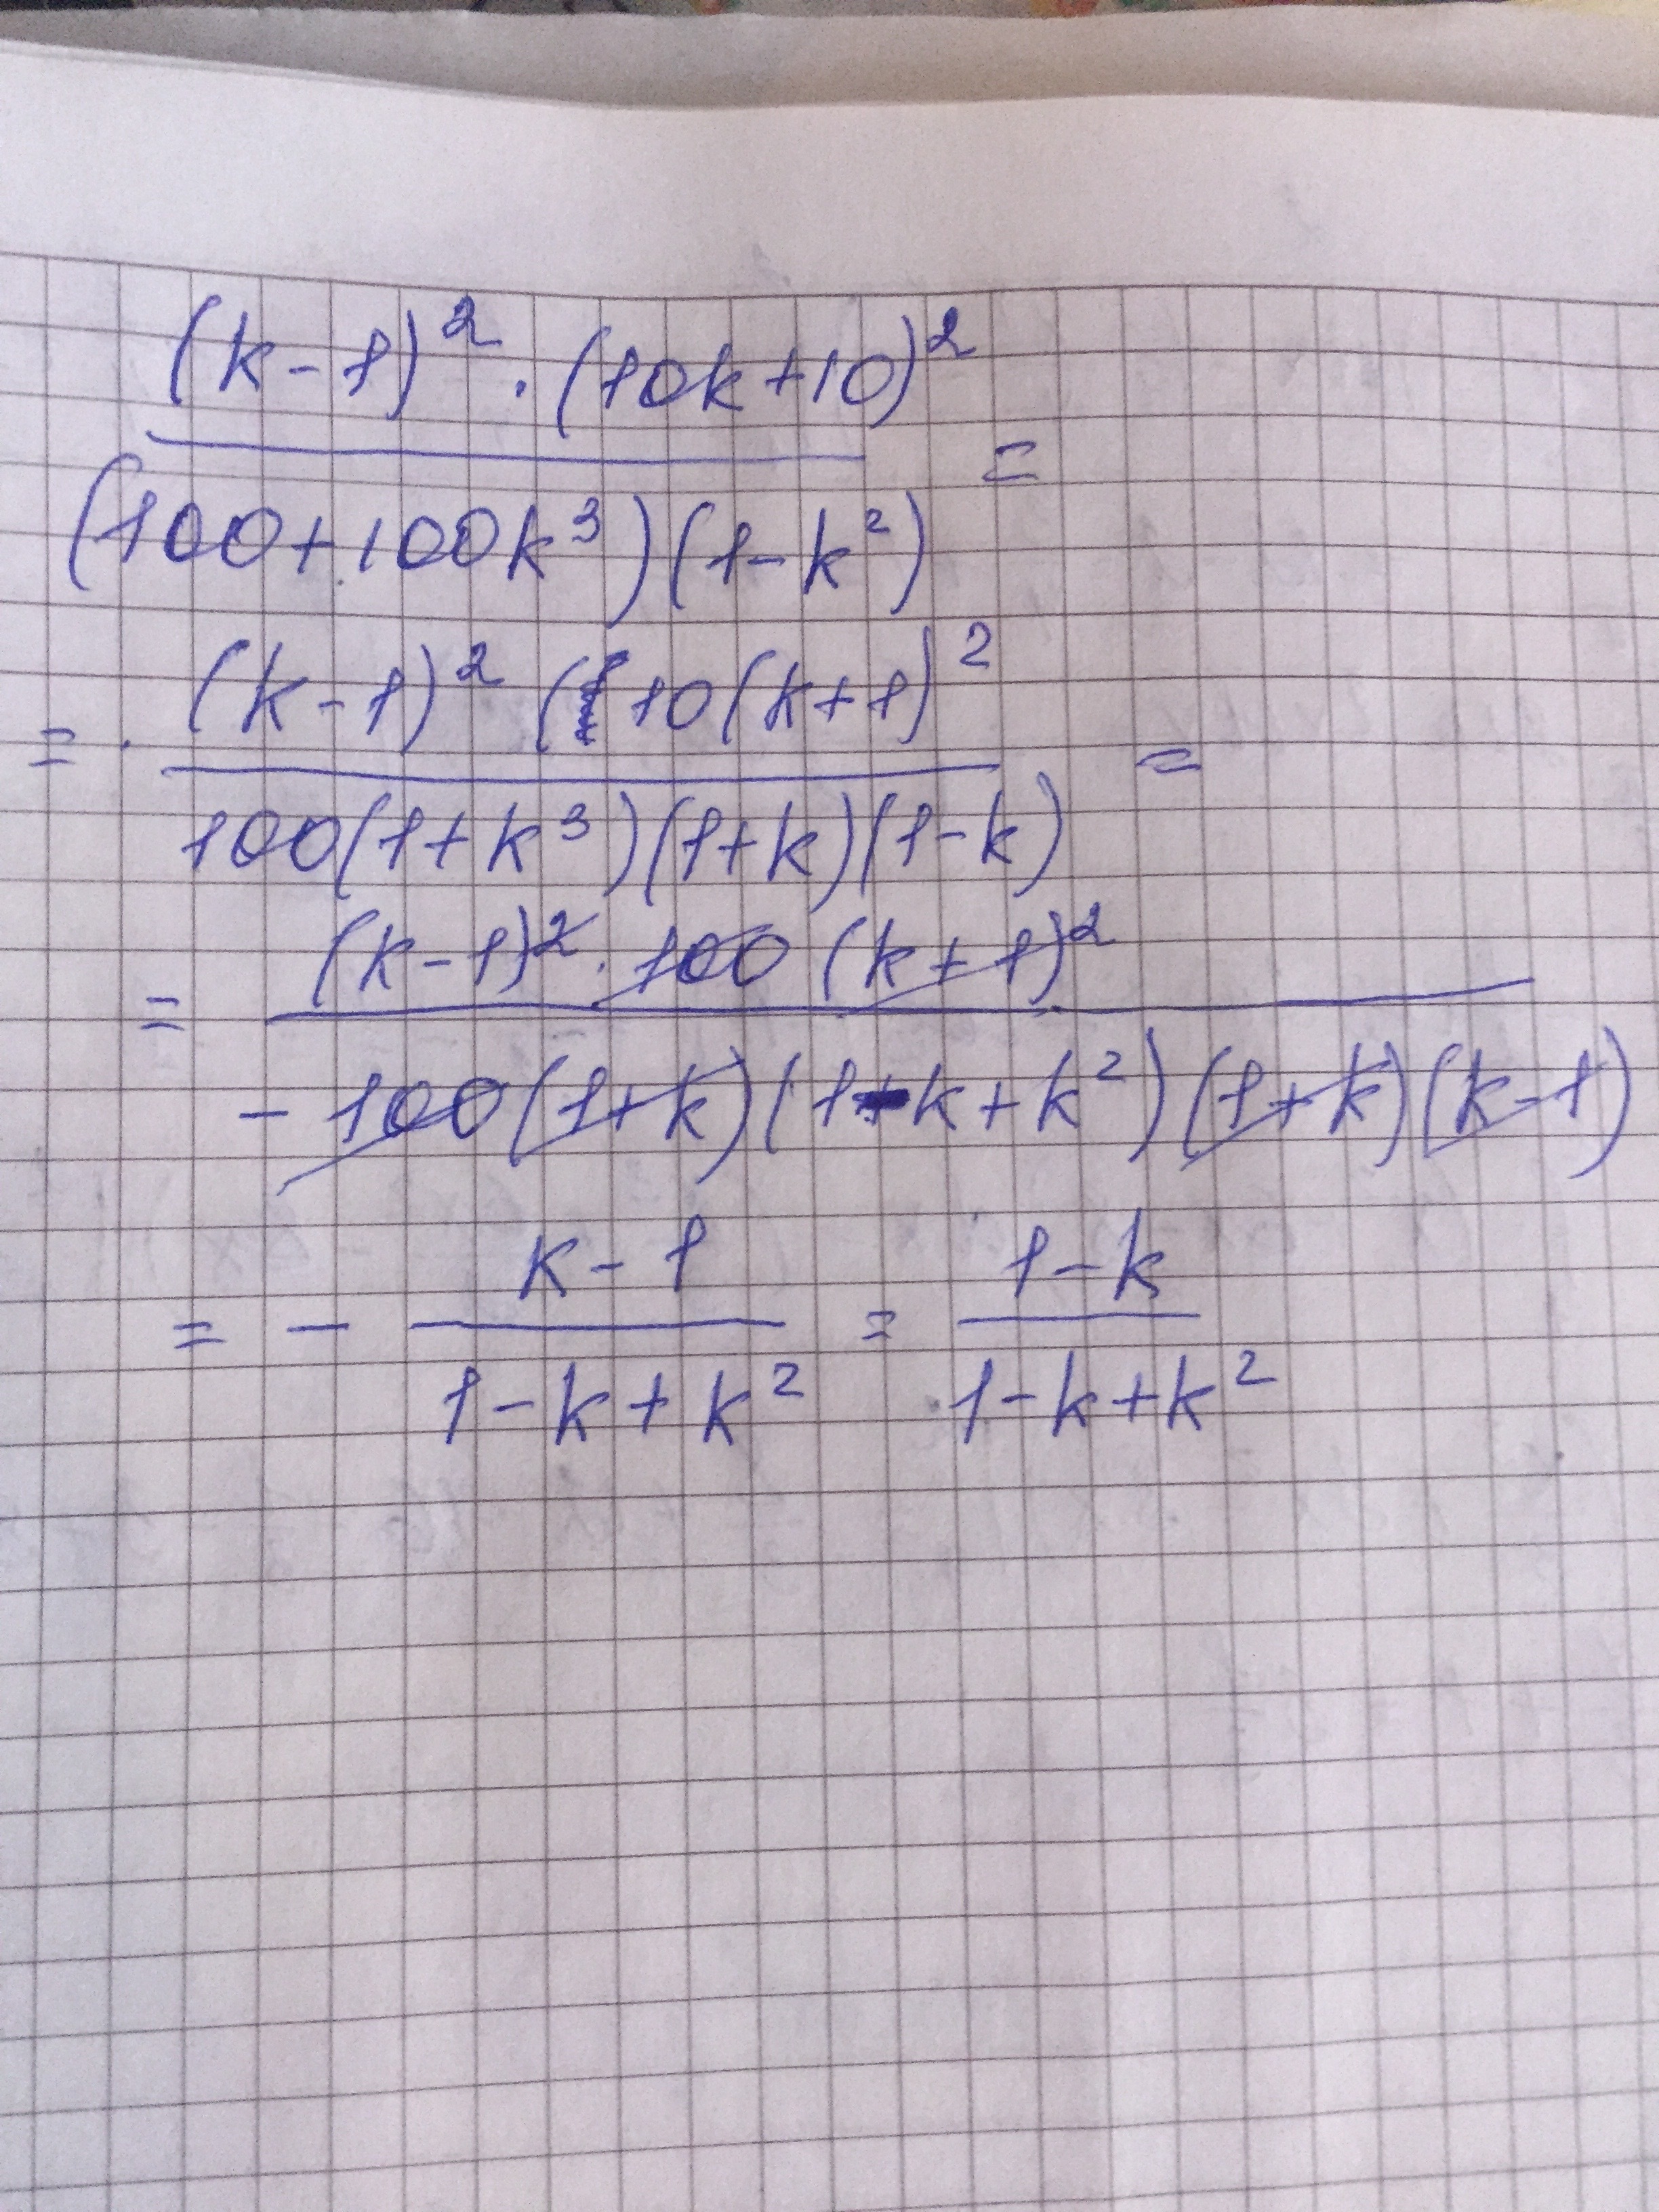 (k-1)² · (10k+10)²
(100+100k³)(1-k²) =
= (k-1)² (10(k+1)² =
100(1+k³)(1+k)(1-k)
= (k-1)² · 100 (k+1)²
-100(1+k)(1-k+k²)(1+k)(k-1)
= - k-1 = 1-k
1-k+k² 1-k+k²